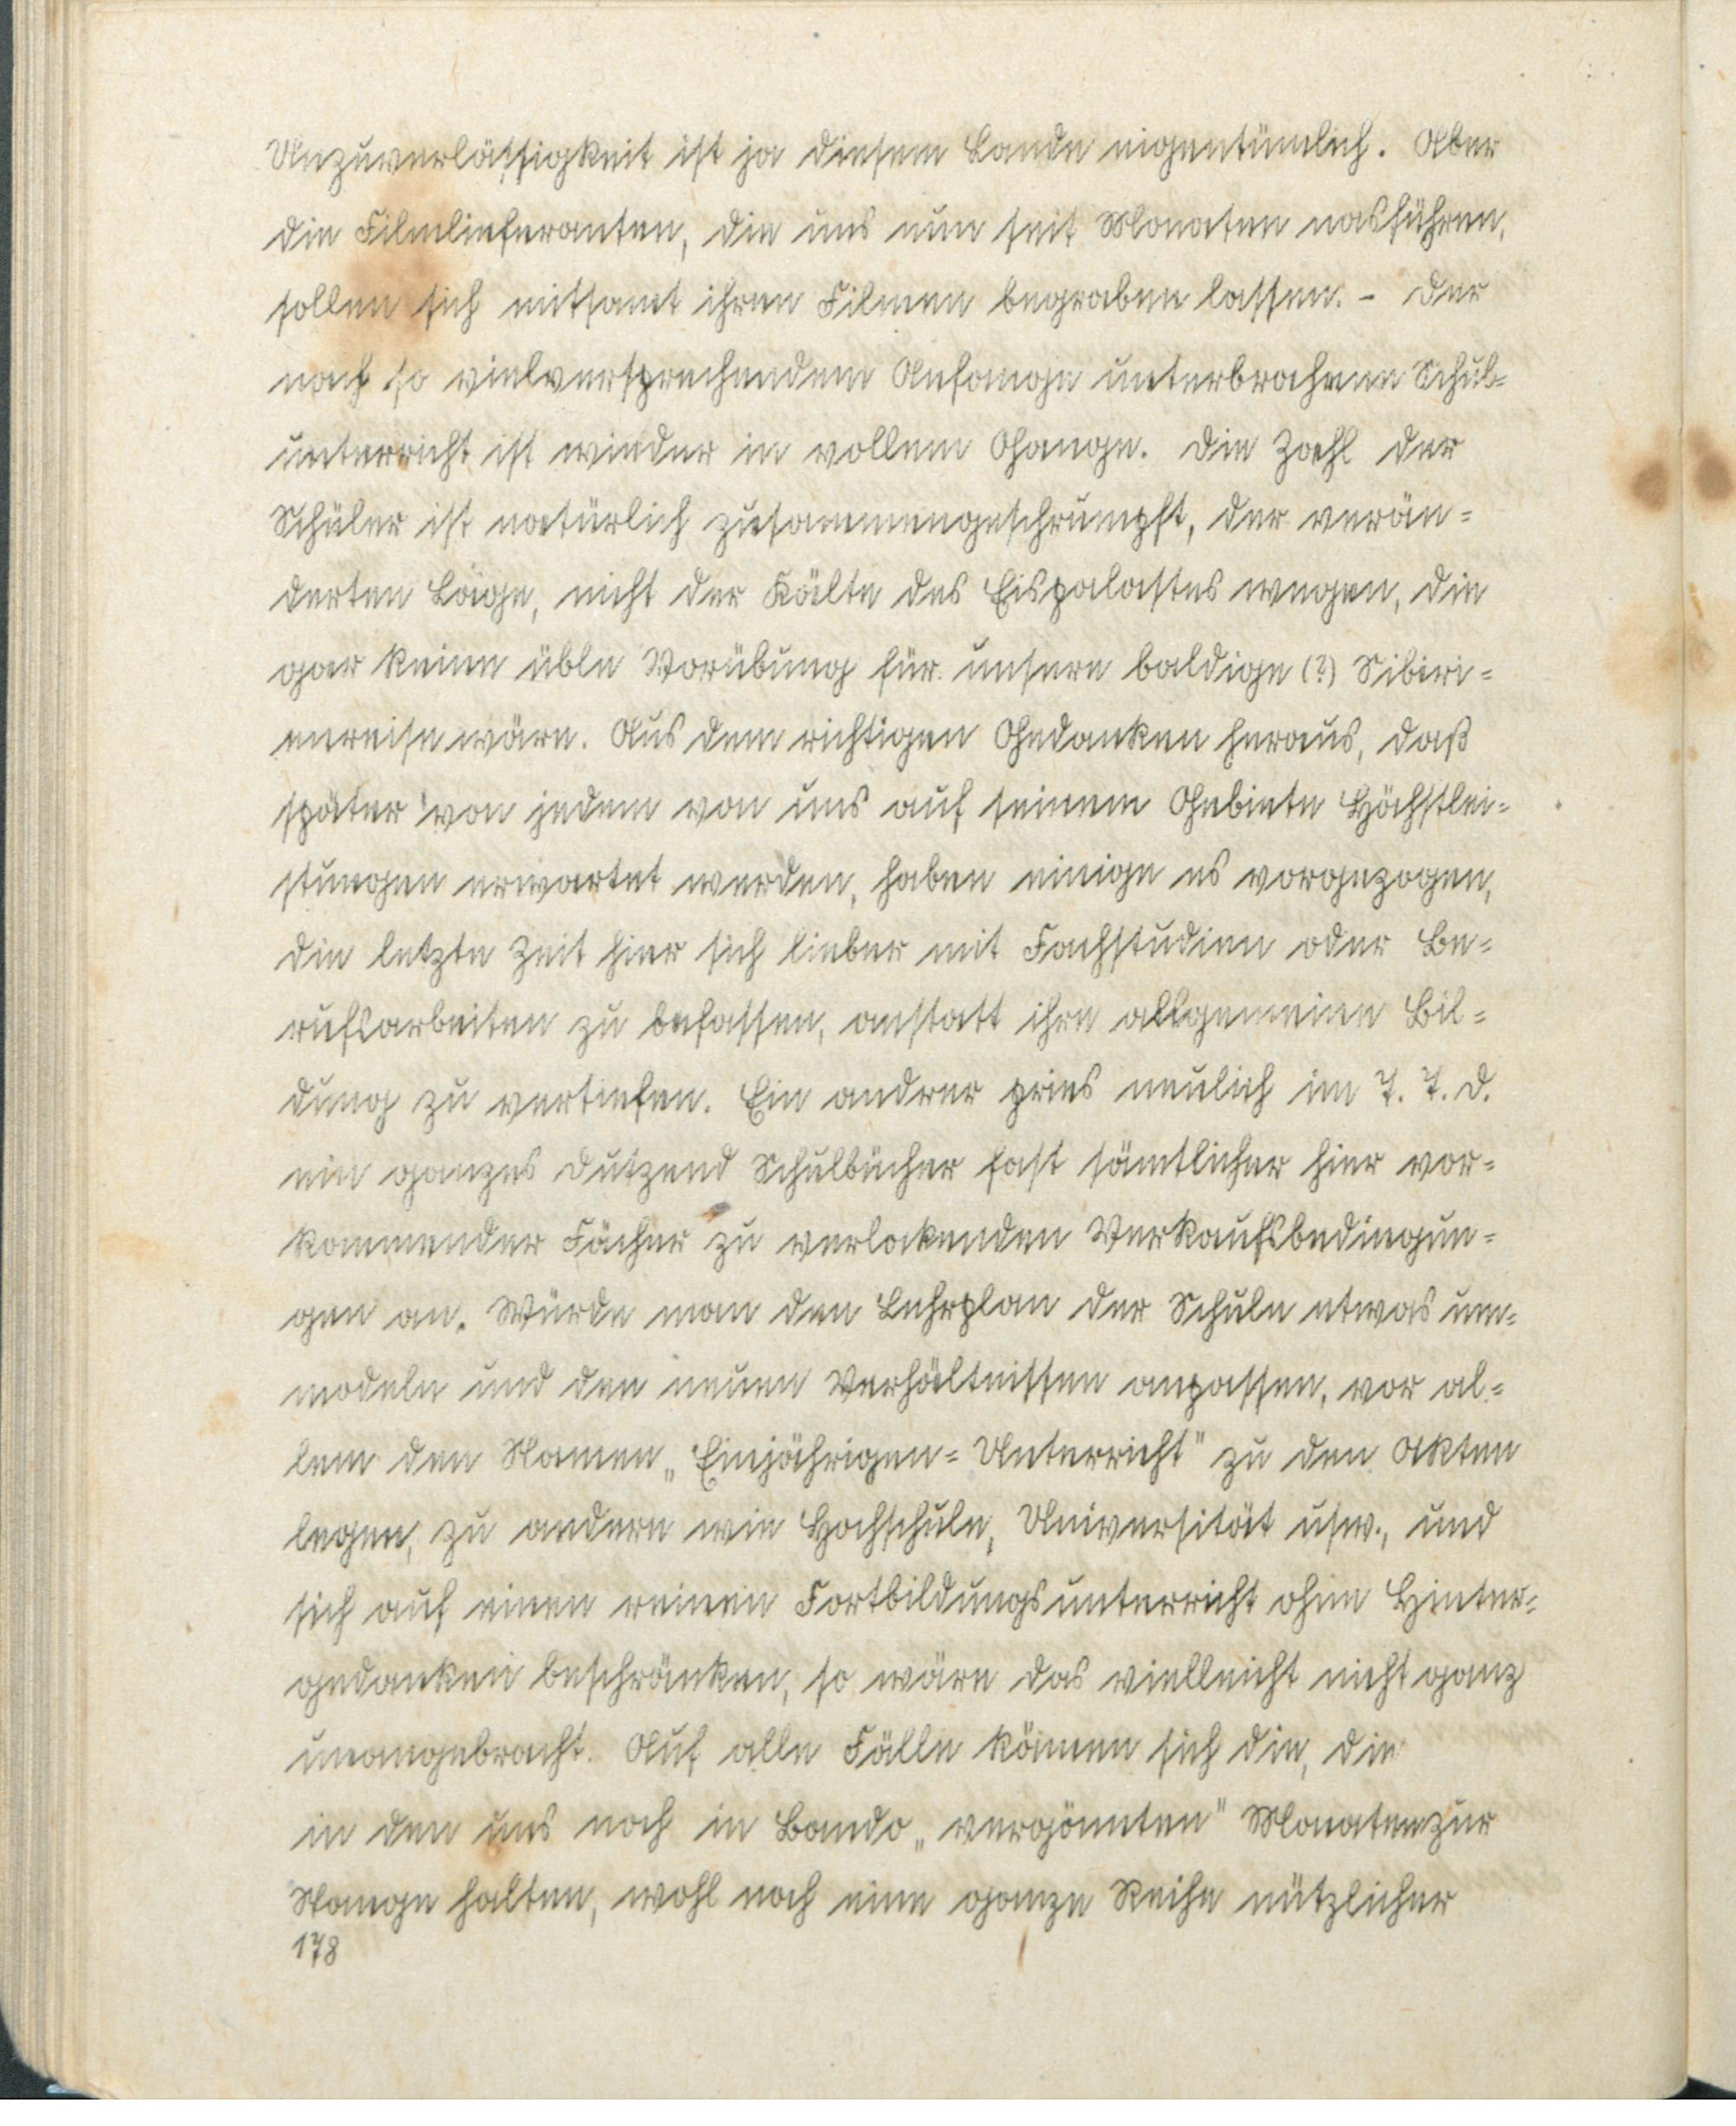 Unzuverlässigkeit ist ja diesem Lande eigentümlich. Aber
die Filmlieferanten, die uns nun seit Monaten nasführen,
sollen sich mitsamt ihren Filmen begraben lassen. - Der
nach so vielversprechendem Anfange unterbrochene Schul=
unterricht ist wieder in vollem Gange. Die Zahl der
Schüler ist natürlich zusammengeschrumpft, der verän=
derten Lage, nicht der Kälte des Eispalastes wegen, die
gar keine üble Vorübung für unsere baldige (?) Sibiri=
enreise wäre. Aus dem richtigen Gedanken heraus, daß
später von jedem von uns auf seinem Gebiete Höchstlei=
stungen erwartet werden, haben einige es vorgezogen,
die letzte Zeit hier sich lieber mit Fachstudien oder Be=
rufsarbeiten zu befassen, anstatt ihre allgemeine Bil=
dung zu vertiefen. Ein andrer pries neulich im T. T. D.
ein ganzes Dutzend Schulbücher fast sämtlicher hier vor=
kommender Fächer zu verlockenden Verkaufsbedingun=
gen an. Würde man den Lehrplan der Schule etwas um=
modeln und den neuen Verhältnissen anpassen, vor al=
lem den Namen „Einjährigen=Unterricht" zu den Akten
legen, zu andern wie Hochschule, Universität usw., und
sich auf einen reinen Fortbildungsunterricht ohne Hinter=
gedanken beschränken, so wäre das vielleicht nicht ganz
unangebracht. Auf alle Fälle können sich die, die
in den uns noch in Bando „vergönnten" Monaten zur
Stange halten, wohl noch eine ganze Reihe nützlicher
178